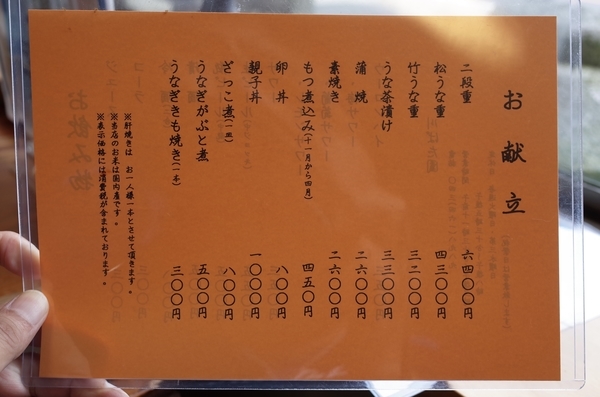 お献立
二段重 六四〇〇円
松うな重 四三〇〇円
竹うな重 三二〇〇円
うな茶漬け 三三〇〇円
蒲焼 二六〇〇円
素焼き 二六〇〇円
もつ煮込み(十一月から四月) 四五〇円
卵丼 八〇〇円
親子丼 一〇〇〇円
ざっこ煮(一皿) 八〇〇円
うなぎがぶと煮 五〇〇円
うなぎきも焼き(一本) 三〇〇円
※肝焼きは お一人様一本とさせて頂きます。
※当店のお米は国内産です。
※表示価格には消費税が含まれております。
お飲み物